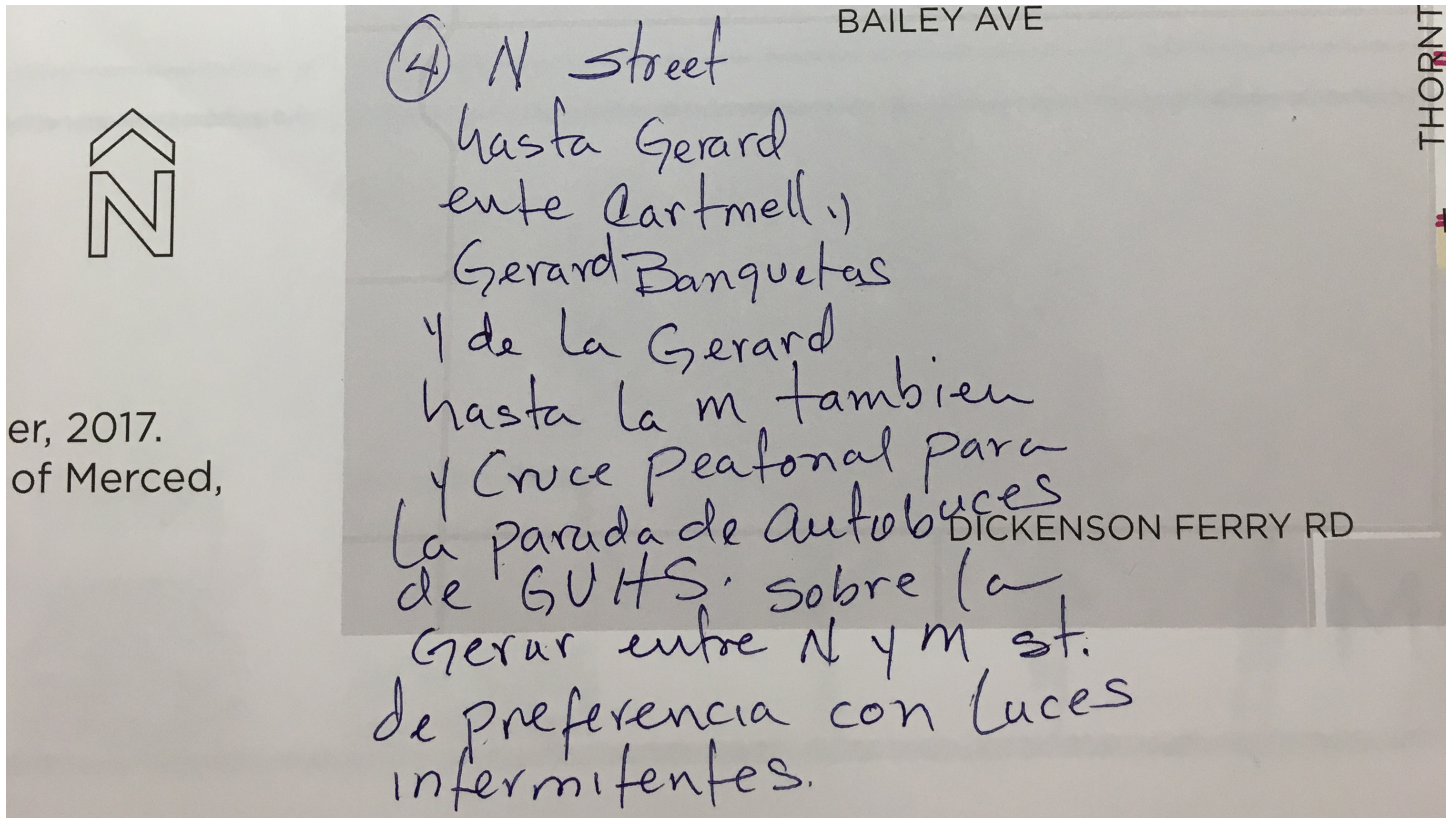 BAILEY AVE
THORNT
④ N street
hasta Gerard
ente Cartmell y
Gerard Banquetas
y de la Gerard
hasta la m tambien
y Cruce peatonal para
la parada de autobuces
de GUHS. sobre la
Gerar entre N y m st.
de preferencia con luces
intermitentes.
N
er, 2017.
of Merced,
DICKENSON FERRY RD